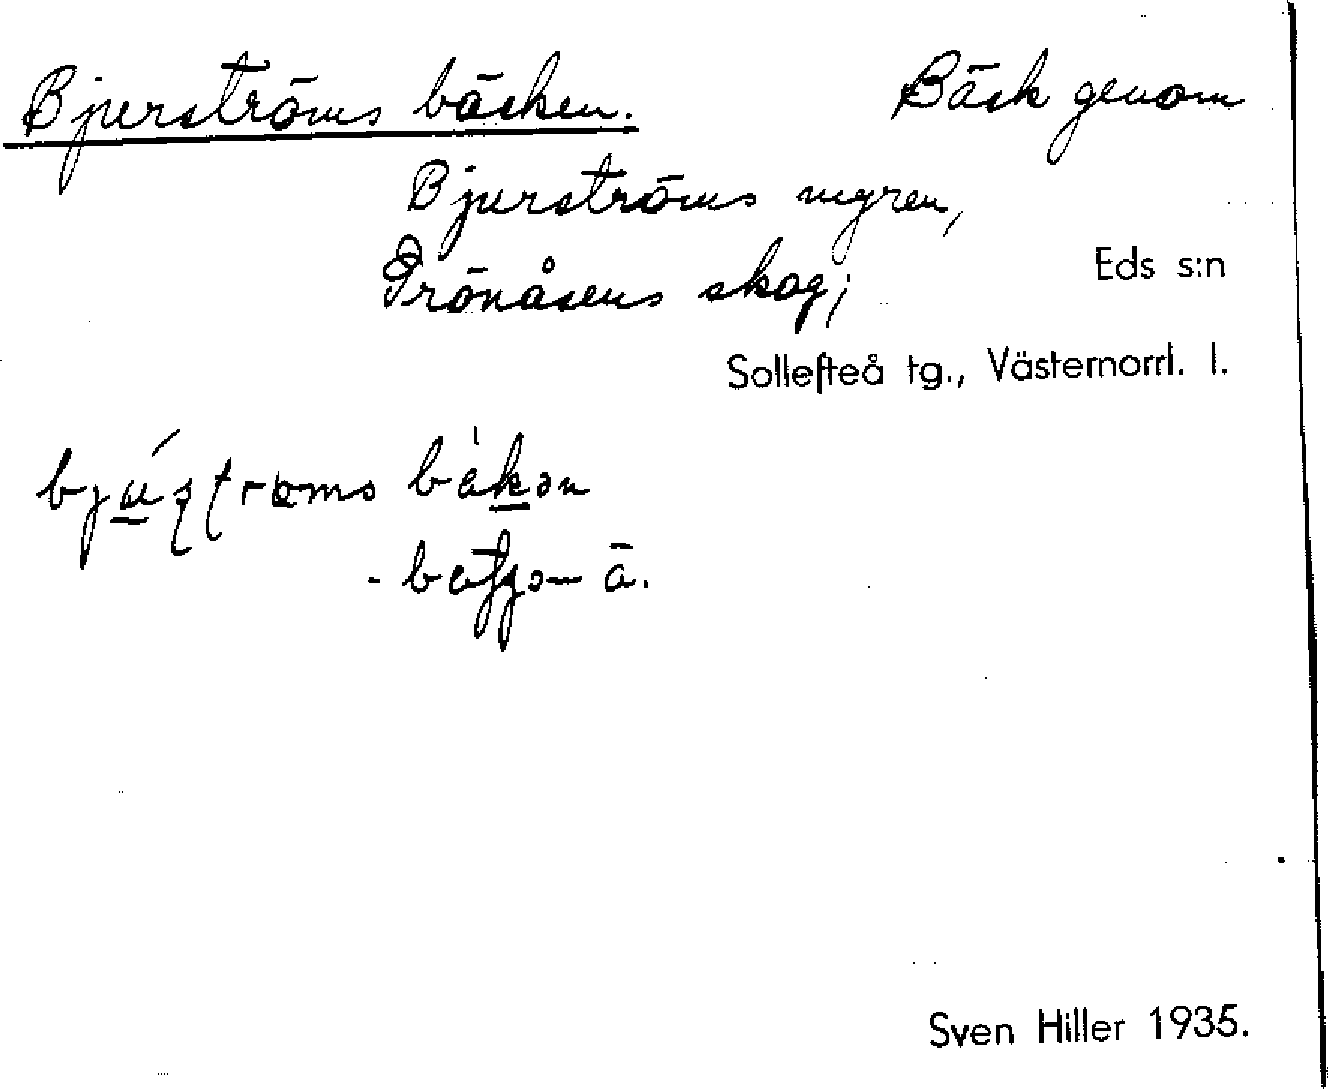 Bjurströms bäcken. Bäck genom
Bjurströms myren,
Grönåsens skog;
Eds s:n
Sollefteå tg., Västernorrl. l.
Sven Hiller 1935.